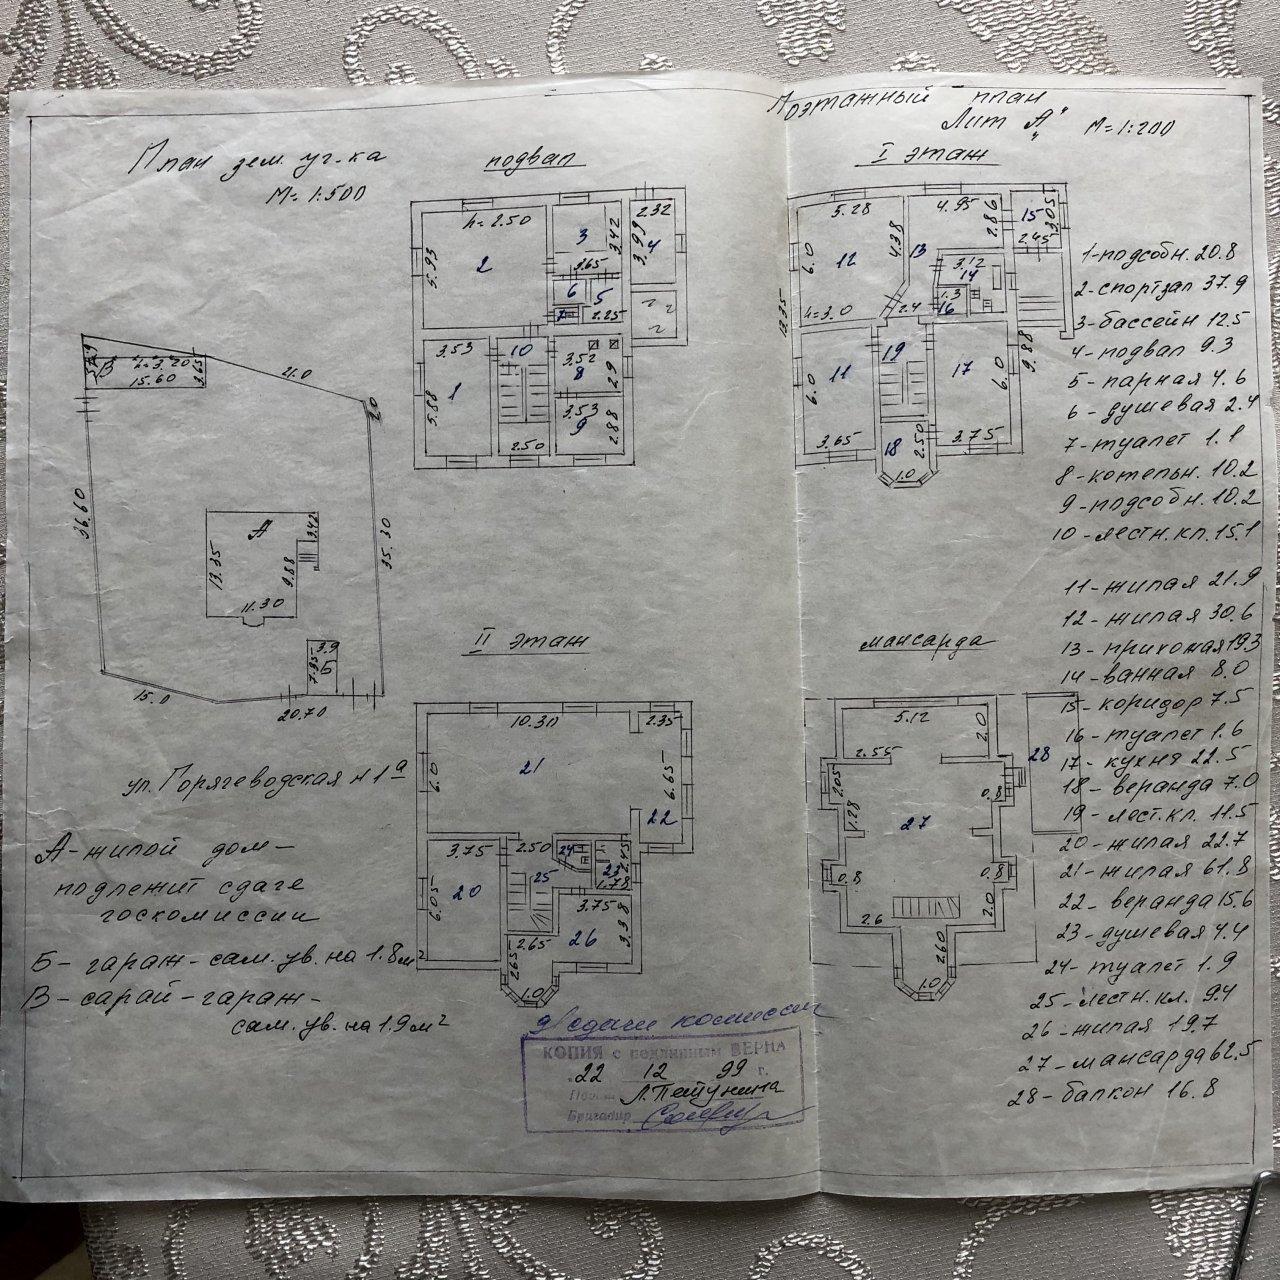 Поэтажный план
Лит "А"
М=1:200
План зем. уч-ка
М= 1:500
подвал
I этаж
h=2.50
5.93
2
3
3.42
3.65
2.32
3.99
4
6
5
7
2.25
10
3.53
5.88
1
3.52
8
2.9
3.53
9
2.88
2.50
5.28
6.0
12
4.38
13
4.95
2.86
15
3.05
2.45
3.12
14
1.3
16
h=3.0
2.4
13.35
19
11
6.0
17
6.0
9.88
3.65
18
2.50
3.75
1.0
1-подсобн. 20.8
2-спортзал 37.9
3-бассейн 12.5
4-подвал 9.3
5-парная 4.6
6-душевая 2.4
7-туалет 1.1
8-котельн. 10.2
9-подсобн. 10.2
10-лестн.кл. 15.1
11-жилая 21.9
12-жилая 30.6
13-прихожая 19.3
14-ванная 8.0
15-коридор 7.5
16-туалет 1.6
17-кухня 22.5
18-веранда 7.0
19-лест.кл. 11.5
20-жилая 22.7
21-жилая 61.8
22-веранда 15.6
23-душевая 4.4
24-туалет 1.9
25-лестн.кл. 9.4
26-жилая 19.7
27-мансарда 62.5
28-балкон 16.8
В
h=3.20
15.60
3.65
21.0
2.0
36.60
35.30
А
3.42
13.35
9.88
11.30
3.9
7.95
Б
15.0
20.70
ул. Горячеводская н 1а
А-жилой дом-
подлежит сдаче
госкомиссии
Б- гараж- сам. ув. на 1.8м²
В- сарай-гараж-
сам. ув. на 1.9м²
II этаж
10.30
2.35
6.0
21
6.65
22
3.75
2.50
24
23
2.45
1.78
6.05
20
25
3.75
26
3.38
2.65
2.65
1.0
мансарда
5.12
2.0
2.55
28
2.05
0.8
1.28
27
0.8
0.8
2.6
2.0
2.60
1.0
сдачи комиссии
КОПИЯ с подлинным ВЕРНА
22 12 99 г.
Л.Петунина
Бригадир